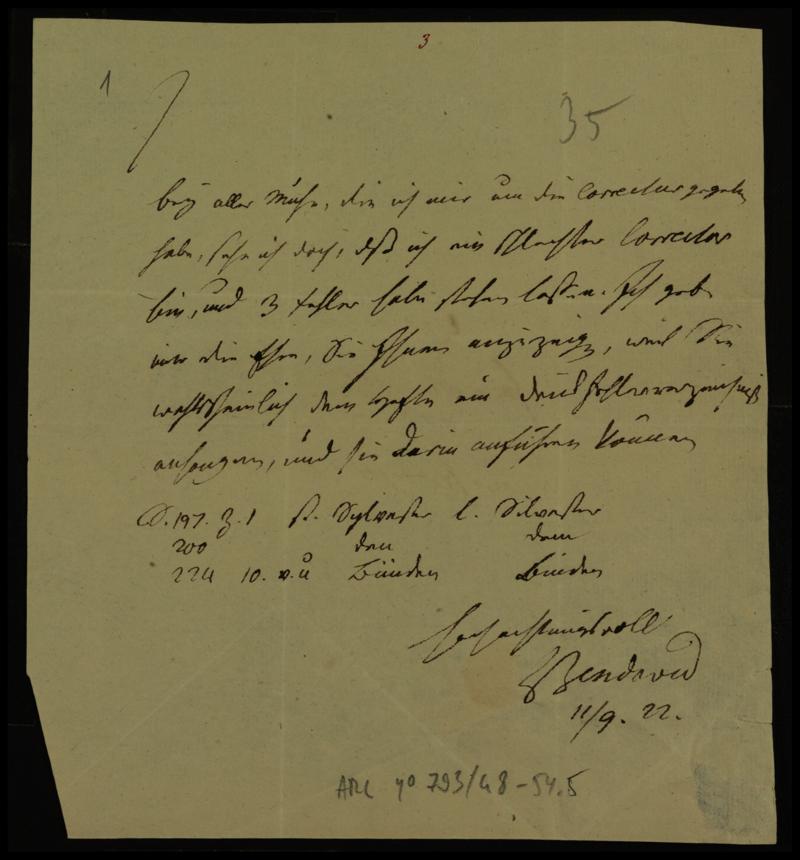 3
1
35
bey aller Mühe, die ich mir um die Correctur gegeben
habe, sehe ich doch, daß ich ein schlechter Corrector
bin, und 3 Fehler habe stehen lassen. Ich gebe
mir die Ehre, Sie Ihnen anzuzeigen, weil Sie
wahrscheinlich dem Hefte ein Druckfehlerverzeichniß
anhangen, und sie darin anführen können
S. 197. Z. 1 st. Sylvester l. Silvester
200 den dem
224 10. v. u Bünden Binden
Hochachtungsvoll
Bendavid
11/9. 22.
ARC 4º 793/48-54.5